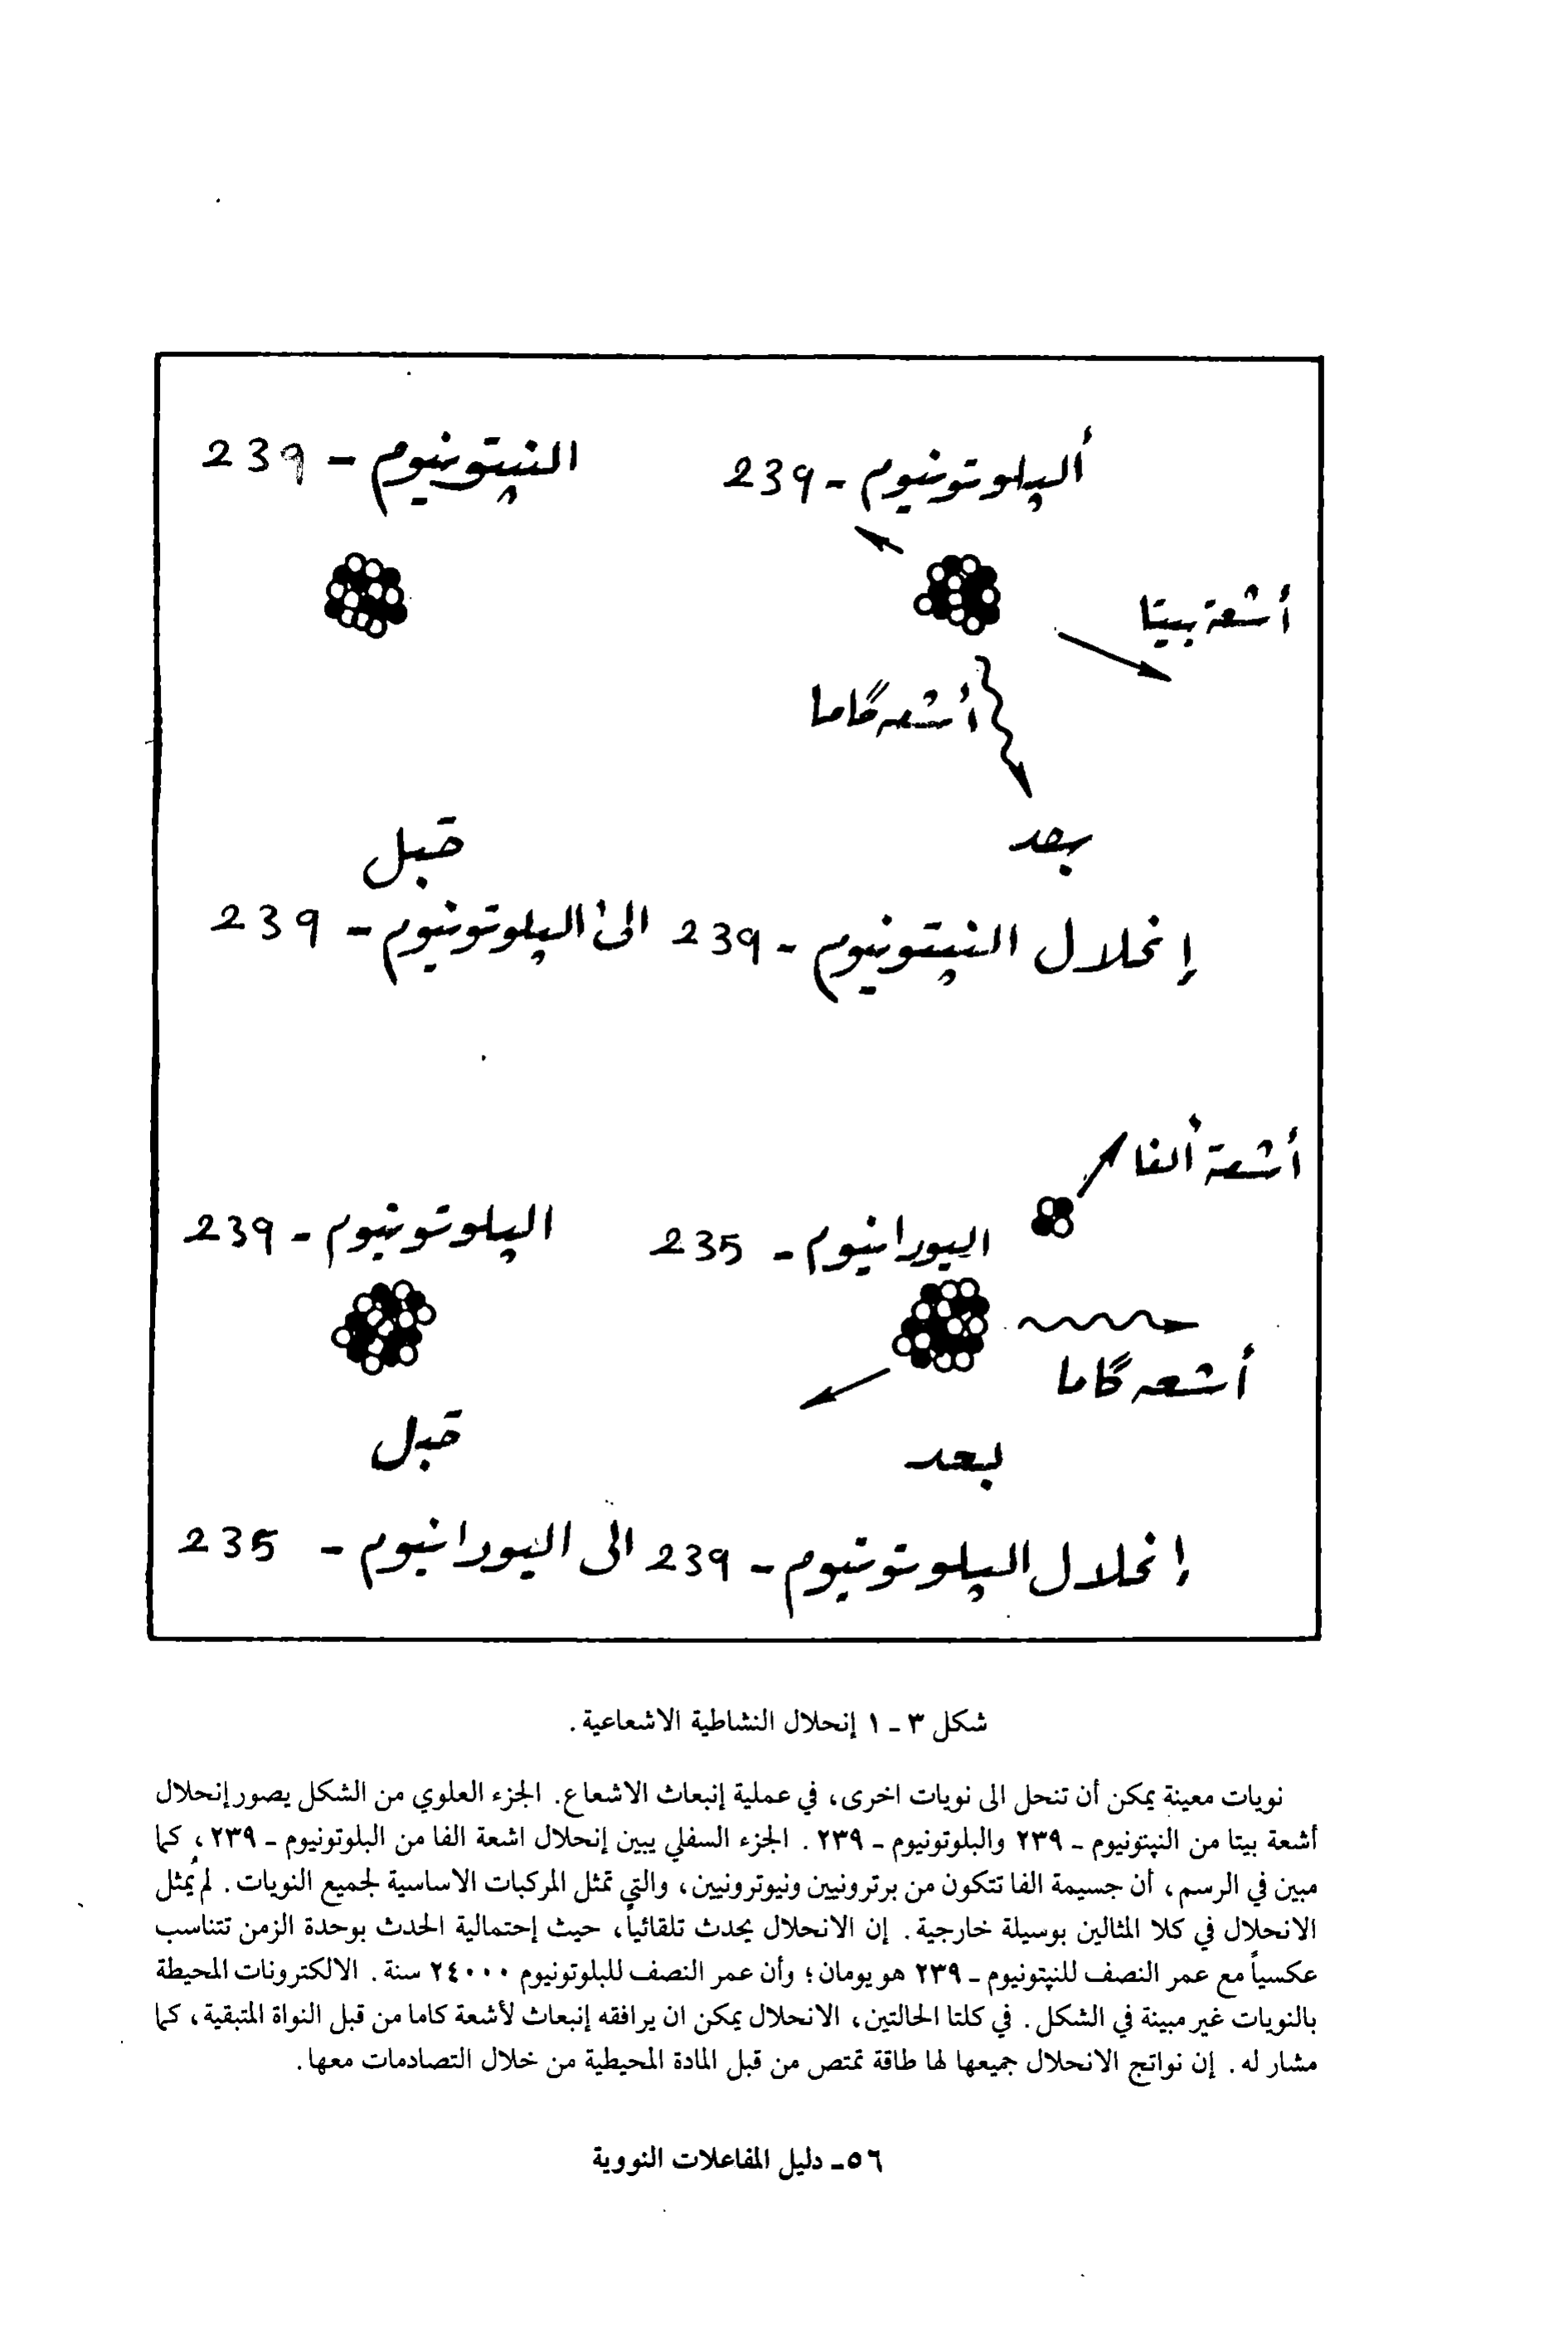 ألپلوتونيوم - 239
النپتونيوم - 239
أشعة بيتا
أشعه گاما
بعد
قبل
إنحلال النپتونيوم - 239 الى الپلوتونيوم - 239
أشعة ألفا
اليورانيوم - 235
الپلوتونيوم - 239
أشعه گاما
بعد
قبل
إنحلال الپلوتونيوم - 239 الى اليورانيوم - 235
شكل ٣ - ١ إنحلال النشاطية الاشعاعية .
نويات معينة يمكن أن تنحل الى نويات اخرى، في عملية إنبعاث الاشعاع. الجزء العلوي من الشكل يصور إنحلال
أشعة بيتا من النپتونيوم - ٢٣٩ والبلوتونيوم - ٢٣٩ . الجزء السفلي يبين إنحلال اشعة الفا من البلوتونيوم - ٢٣٩، كما
مبين في الرسم، أن جسيمة الفا تتكون من برترونيين ونيوترونيين، والتي تمثل المركبات الاساسية لجميع النويات. لم يُمثل
الانحلال في كلا المثالين بوسيلة خارجية. إن الانحلال يحدث تلقائياً، حيث إحتمالية الحدث بوحدة الزمن تتناسب
عكسياً مع عمر النصف للنپتونيوم - ٢٣٩ هو يومان؛ وأن عمر النصف للبلوتونيوم ٢٤٠٠٠ سنة. الالكترونات المحيطة
بالنويات غير مبينة في الشكل. في كلتا الحالتين، الانحلال يمكن ان يرافقه إنبعاث لأشعة كاما من قبل النواة المتبقية، كما
مشار له. إن نواتج الانحلال جميعها لها طاقة تمتص من قبل المادة المحيطية من خلال التصادمات معها.
٥٦- دليل المفاعلات النووية